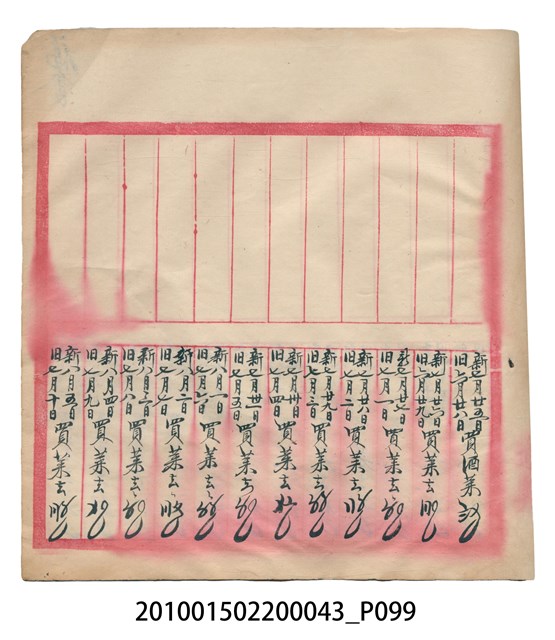 新七月廿五日
旧六月廿八日買酒菜
新七月廿六日
旧六月廿九日買菜去
新七月廿七日
旧七月一日買菜去
新七月廿八日
旧七月二日買菜去
新七月廿九日
旧七月三日買菜去
新七月卅日
旧七月四日買菜去
新七月卅一日
旧七月五日買菜去
新八月一日
旧七月六日買菜去
新八月二日
旧七月七日買菜去
新八月三日
旧七月八日買菜去
新八月四日
旧七月九日買菜去
新八月五日
旧七月十日買菜去
201001502200043_P099